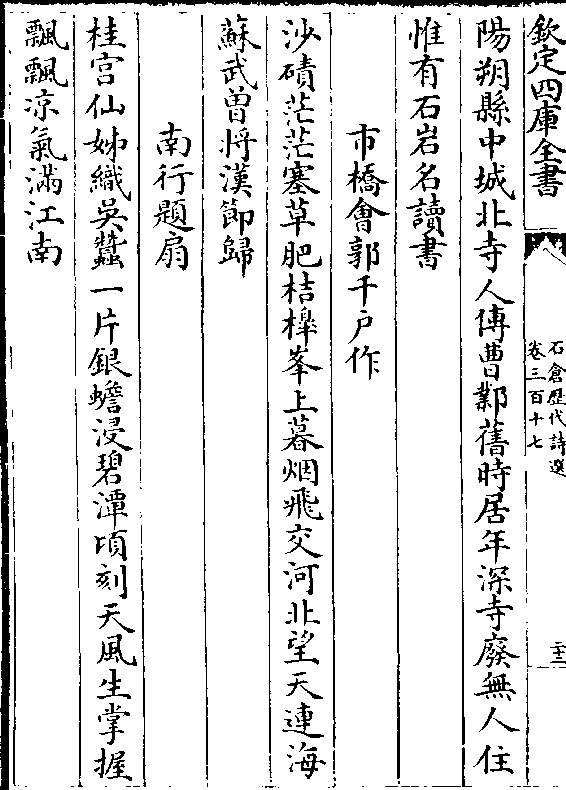 欽定四庫全書
石倉歴代詩選
卷三百十七
二十三
陽朔縣中城北寺人傳曹鄴舊時居年深寺廢無人住
惟有石岩名讀書
市橋㑹郭千戸作
沙磧茫茫塞草肥桔橰峯上暮烟飛交河北望天連海
蘇武曽將漢節歸
南行題扇
桂宫仙姊織吳蠶一片銀蟾浸碧潭頃刻天風生掌握
飄飄凉氣滿江南